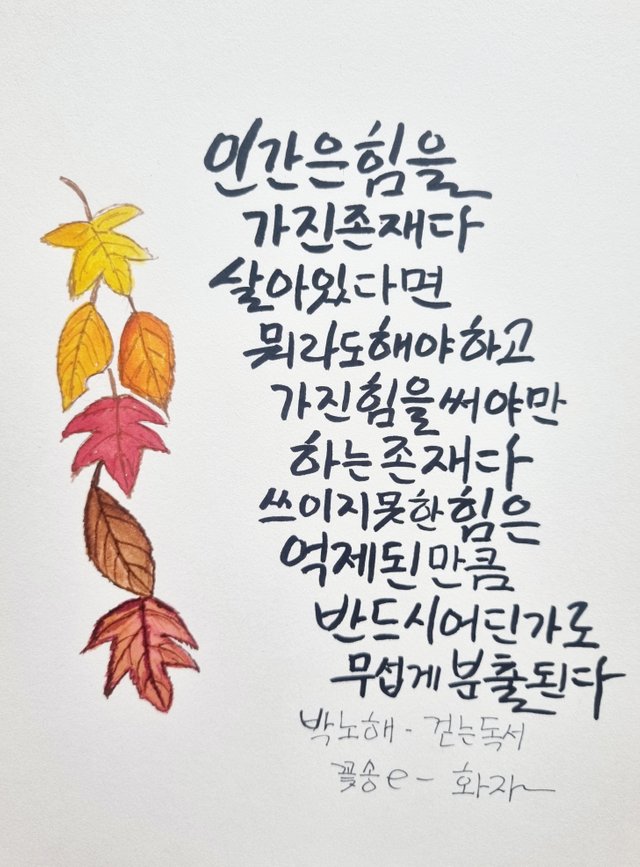 인간은 힘을
가진 존재다
살아있다면
뭐라도 해야 하고
가진 힘을 써야만
하는 존재다
쓰이지 못한 힘은
억제된 만큼
반드시 어딘가로
무섭게 분출된다
박노해 - 걷는 독서
꽃송e - 화자